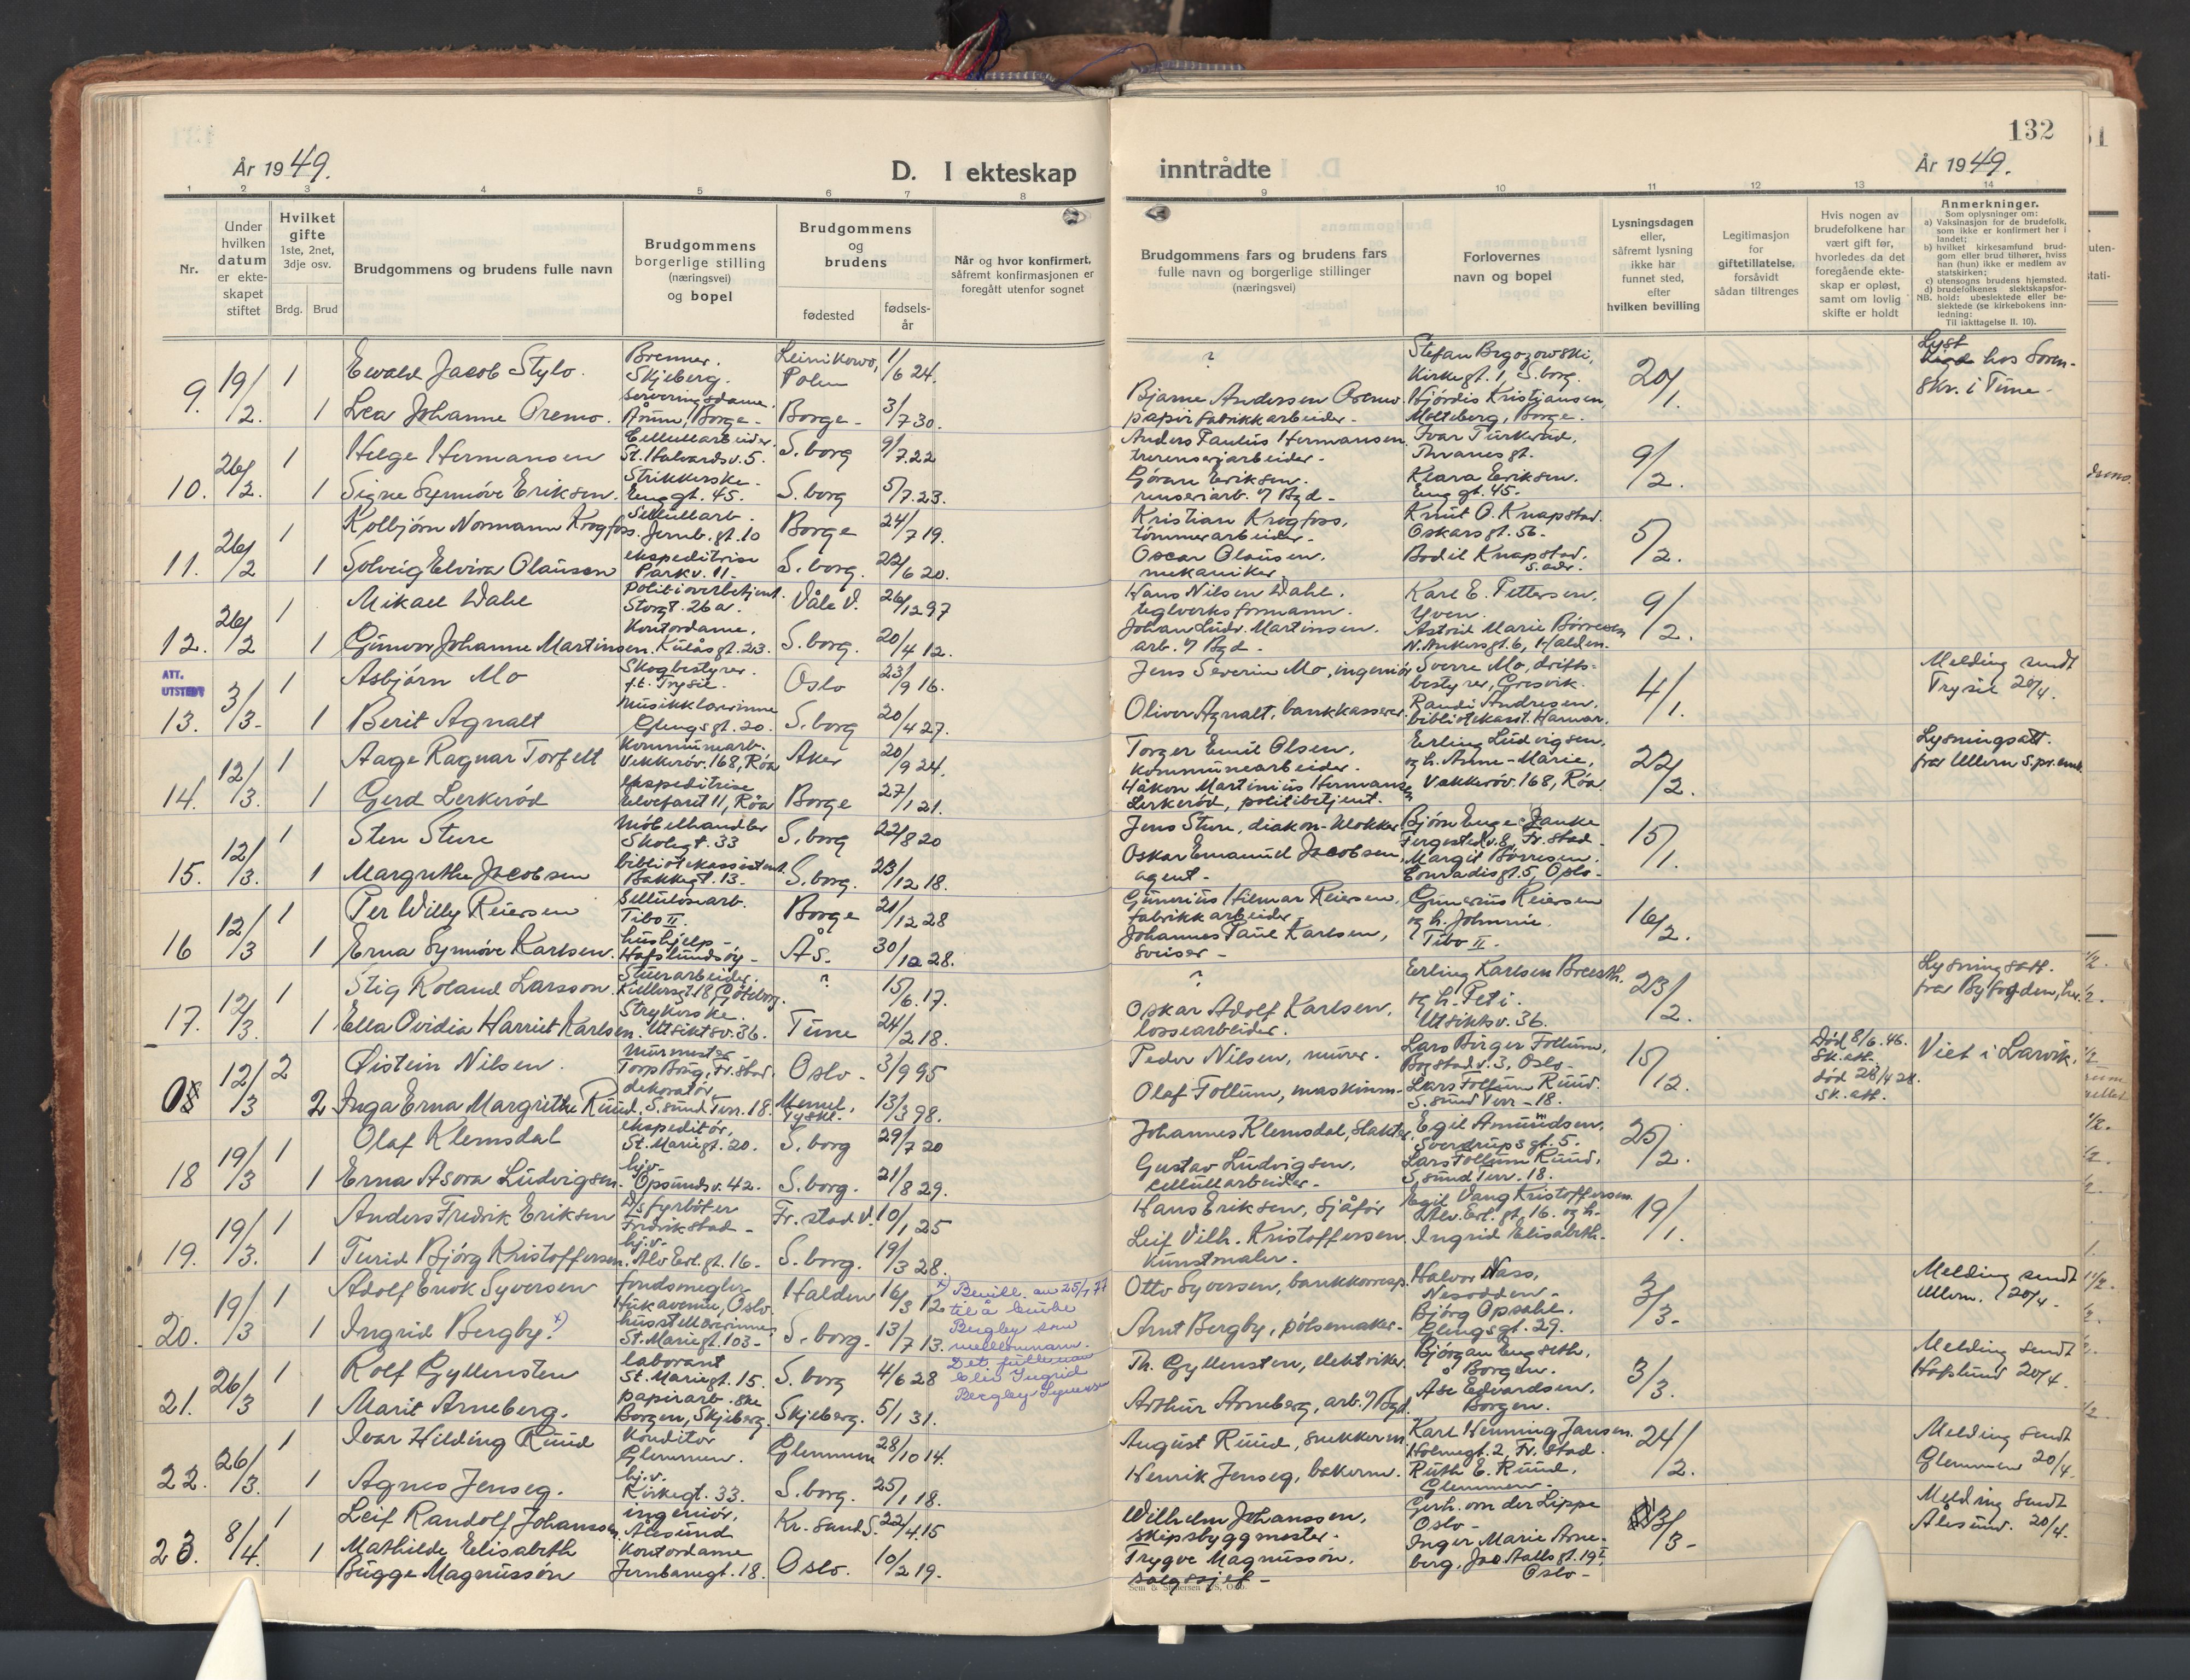 132
År 1949.
D. I ekteskap inntrådte
År 1949.
1 2 3 4 5 6 7 8 9 10 11 12 13 14
Nr.
Under hvilken datum er ekte-skapet stiftet
Hvilket gifte
1ste, 2net, 3dje osv.
Brdg. Brud
Brudgommens og brudens fulle navn
Brudgommens borgerlige stilling (næringsvei) og bopel
Brudgommens og brudens
fødested
fødsels-år
Når og hvor konfirmert, såfremt konfirmasjonen er foregått utenfor sognet
Brudgommens fars og brudens fars fulle navn og borgerlige stillinger (næringsvei)
Forlovernes navn og bopel
Lysningsdagen eller, såfremt lysning ikke har funnet sted, efter hvilken bevilling
Legitimasjon for giftetillatelse, forsåvidt sådan tiltrenges
Hvis nogen av brudefolkene har vært gift før, hvorledes da det foregående ekte-skap er opløst, samt om lovlig skifte er holdt
Anmerkninger.
Som oplysninger om:
a) Vaksinasjon for de brudefolk, som ikke er konfirmert her i landet;
b) hvilket kirkesamfund brud-gom eller brud tilhører, hviss han (hun) ikke er medlem av statskirken;
c) utensogns brudens hjemsted.
d) brudefolkenes slektskapsfor-hold: ubeslektede eller be-slektede (se kirkebokens inn-ledning:
NB. Til iakttagelse II. 10).
9. 19/2. 1 Ewald Jacob Stylo. Brenner. Skjeberg. Polen 1/6 24. ? Stefan Brgozowski, Kirkegt. 1, S.borg. 20/1. Lyst hos Soren-skr. i Tune.
1 Lea Johanne Oremo. Serveringsdame. Årum, Borge. Borge 3/7 30. Bjarne Andersen Oremo. papirfabrikkarbeider. Hjørdis Kristiansen, Molteberg, Borge.
10. 26/2. 1 Helge Hermansen Cellullarbeider. St. Halvardsv. 5. S.borg 9/7 22 Anders Paulus Hermansen. Ivar Turkerud. 9/2.
1 Signe Synnøve Eriksen. Strikkerske. Enggt. 45. S.borg 5/7 23. Gøran Eriksen. renseriarb. v/ Bgd. Klara Eriksen. Enggt. 45.
11. 26/2 1 Kolbjørn Normann Krogfoss. Sellullarb. Jernb. gt. 10 Borge 24/7 19. Kristian Krogfoss, tømmerarbeider. Knut O. Knapstad. Oskarsgt. 56. 5/2.
1 Solveig Elvira Olausen ekspeditrise Parkv. 11. S.borg. 22/6 20. Oscar Olausen. mekaniker. Bodil Knapstad. s. adr.
12. 26/2 1 Mikael Dahl Politioverbetjent. Storgt. 26a. Våle V. 26/12 97 Hans Nilsen Dahl. teglverksformann. Karl E. Pettersen, Yven. 9/2.
1 Gunvor Johanne Martinsen. Kontordame. Kulåsgt. 23. S.borg. 20/4 12. Johan Ludv. Martinsen. arb. v/ Bgd. Astrid Marie Børresen N. Ankersgt. 6, Halden.
ATT. UTSTEDT
13. 3/3. 1 Asbjørn Mo Skogbestyrer. f.t. Trysil. Oslo 23/9 16. Jens Severin Mo, ingeniør Sverre Mo, drifts-bestyrer, Gresvik. 4/1. Melding sendt Trysil 20/4.
1 Berit Agnalt Musikklærerinne Glengsgt. 20. S.borg 20/4 27. Oliver Agnalt, bankkasserer. Randi Andresen, bibliotekasst. Hamar.
14. 12/3. 1 Aage Ragnar Torfelt Kommunearb. Vekkerøv. 168, Røa Aker 20/9 24. Torger Emil Olsen, Kommunearbeider. Erling Ludvigsen, og h. Anne-Marie, Vekkerøv. 168, Røa 22/2. Lysningsatt. fra Ullern s.pr.emb.
1 Gerd Lerkerød ekspeditrise Elvefaret 11, Røa Borge 27/1 21. Håkon Martinius Hermansen Lerkerød, politibetjent.
15. 12/3. 1 Sten Sture Møbelhandler Skolegt. 33 S.borg 22/8 20 Jens Sture, diakon-klokker Bjørn Enge Janke Fergestedv. 8, Fr.stad 15/1.
1 Margrethe Jacobsen bibliotekassistent. Bakkegt. 13. S.borg. 23/12 18. Oskar Emanuel Jacobsen, agent. Margit Børresen. Conradisgt. 5, Oslo.
16 12/3 1 Per Willy Reiersen Sellulosearb. Tibo II. Borge 21/12 28 Gunerius Hilmar Reiersen. fabrikkarbeider. Gunerius Reiersen og h. Johanne. Tibo II. 16/2.
1 Erna Synnøve Karlsen. hushjelp. Hafslundsøy. Ås. 30/12 28. Johannes Paul Karlsen, sveiser.
17. 12/3. 1 Stig Roland Larsson. Stuerarbeider. Göteborg. ? 15/6 17. ? Erling Karlsen og h. Peti. Utsiktsv. 36. 23/2. Lysningsatt. fra Byfogden, her.
1 Ella Ovidia Harriet Karlsen. Strykerske. Utsiktsv. 36. Tune 24/2 18. Oskar Adolf Karlsen, lossearbeider.
12/3 2 Øistein Nilsen. Murmester Torp Borg, Fr.stad. Oslo 3/9 95 Peder Nilsen, murer. Lars Birger Follum, Bogstadv. 3, Oslo. 15/12. Død 8/6.46. Sk. att. Viet i Larvik.
2 Inga Erna Margrethe Ruud. dekoratør S.sund Terr. 18. Memel, Tyskl. 13/3 98. Olaf Follum, maskinm. Lars Follum Ruud. S.sund Terr. 18. død 28/4 28. Sk. att.
18 19/3 1 Olaf Klemsdal ekspeditør, St. Mariegt. 20. S.borg 29/7 20 Johannes Klemsdal, slakter. Egil Amundsen, Sverdrupsgt. 5. 25/2.
1 Erna Asora Ludvigsen. hjv. Opsundsv. 42. S.borg. 21/8 29. Gustav Ludvigsen, cellullarbeider. Lars Follum Ruud, S.sund Terr. 18.
19. 19/3. 1 Anders Fredrik Eriksen D/s fyrbøter Fredrikstad Fr.stad V. 10/1 25 Hans Eriksen, sjåfør Egil Vang Kristoffersen. Alv. Erl. gt. 16. og h. Ingrid Elisabeth. 19/1.
1 Turid Bjørg Kristoffersen. hj.v. Alv Erl. gt. 16. S.borg. 19/3 28. Leif Vilh. Kristoffersen. Kunstmaler.
20. 19/3 1 Adolf Enok Syversen fondsmegler Huk avenue, Oslo Halden 16/3 12 Otto Syversen, bankkorresp. Halvor Nass, Nesodden. 3/3. Melding sendt Ullern. 20/4.
1 Ingrid Bergby. x) husstellærerinne St. Mariegt. 103. S.borg. 13/7 13. Arnt Bergby, pølsemaker. Bjørg Opsahl. Glengsgt. 29.
x) Bevill. av 25/1 77 til å bruke Bergby som mellomnavn. Det fulle navn blir Ingrid Bergby Syversen
21. 26/3 1 Rolf Gyllensten laborant St. Mariegt. 15. S.borg 4/6 28 Th. Gyllensten, elektriker. Borgen. 3/3. Melding sendt Hafslund 20/4.
1 Marit Arneberg. papirarb.ske Borgen, Skjeberg. Skjeberg. 5/1 31. Arthur Arneberg, arb. v/ Bgd. Ase Edvardsen. Borgen.
22. 26/3. 1 Ivar Hilding Ruud Konditor Glemmen. Glemmen 28/10 14. August Ruud, snekkerm. Karl Henning Jansen. Holmegt. 2, Fr.stad. 24/2. Melding sendt Glemmen 20/4.
1 Agnes Jenseg. hj.v. Kirkegt. 33. S.borg. 25/1 18. Henrik Jenseg, bakerm. Ruth E. Ruud, Glemmen.
23. 8/4. 1 Leif Randolf Johanssen ingeniør, Ålesund Kr.sund S. 22/4 15 Wilhelm Johanssen, skipsbyggmester. Gerh. von der Lippe Oslo 3/3. Melding sendt Ålesund. 20/4.
1 Mathilde Elisabeth Bugge Magnussøn Kontordame Jernbanegt. 18. Oslo. 10/2 19. Trygve Magnussøn, salgssjef. Inger Marie Arne-berg, Jac Aallsgt. 19 I, Oslo.